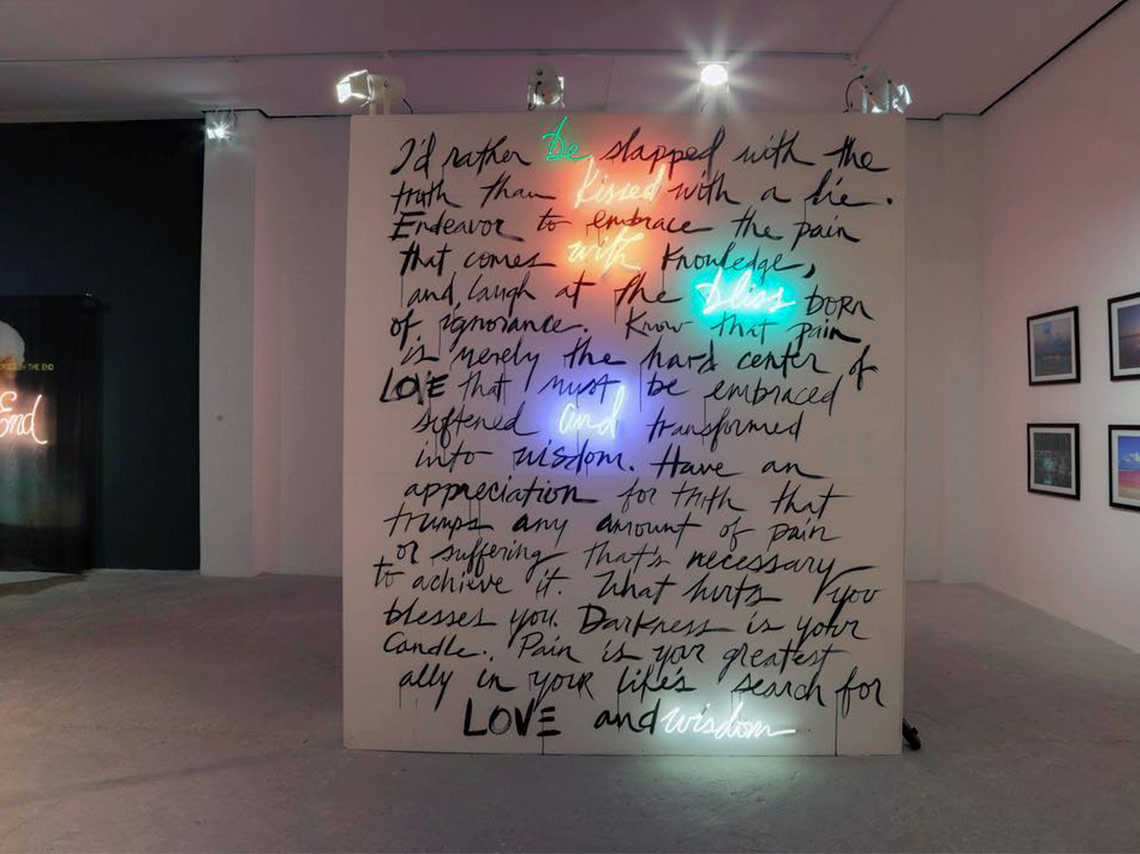 I'd rather be slapped with the
truth than kissed with a lie.
Endeavor to embrace the pain
that comes with knowledge,
and laugh at the bliss born
of ignorance. Know that pain
is merely the hard center of
LOVE that must be embraced
softened and transformed
into wisdom. Have an
appreciation for truth that
trumps any amount of pain
or suffering that's necessary
to achieve it. What hurts you
blesses you. Darkness is your
candle. Pain is your greatest
ally in your life's search for
LOVE and wisdom
THE END
End